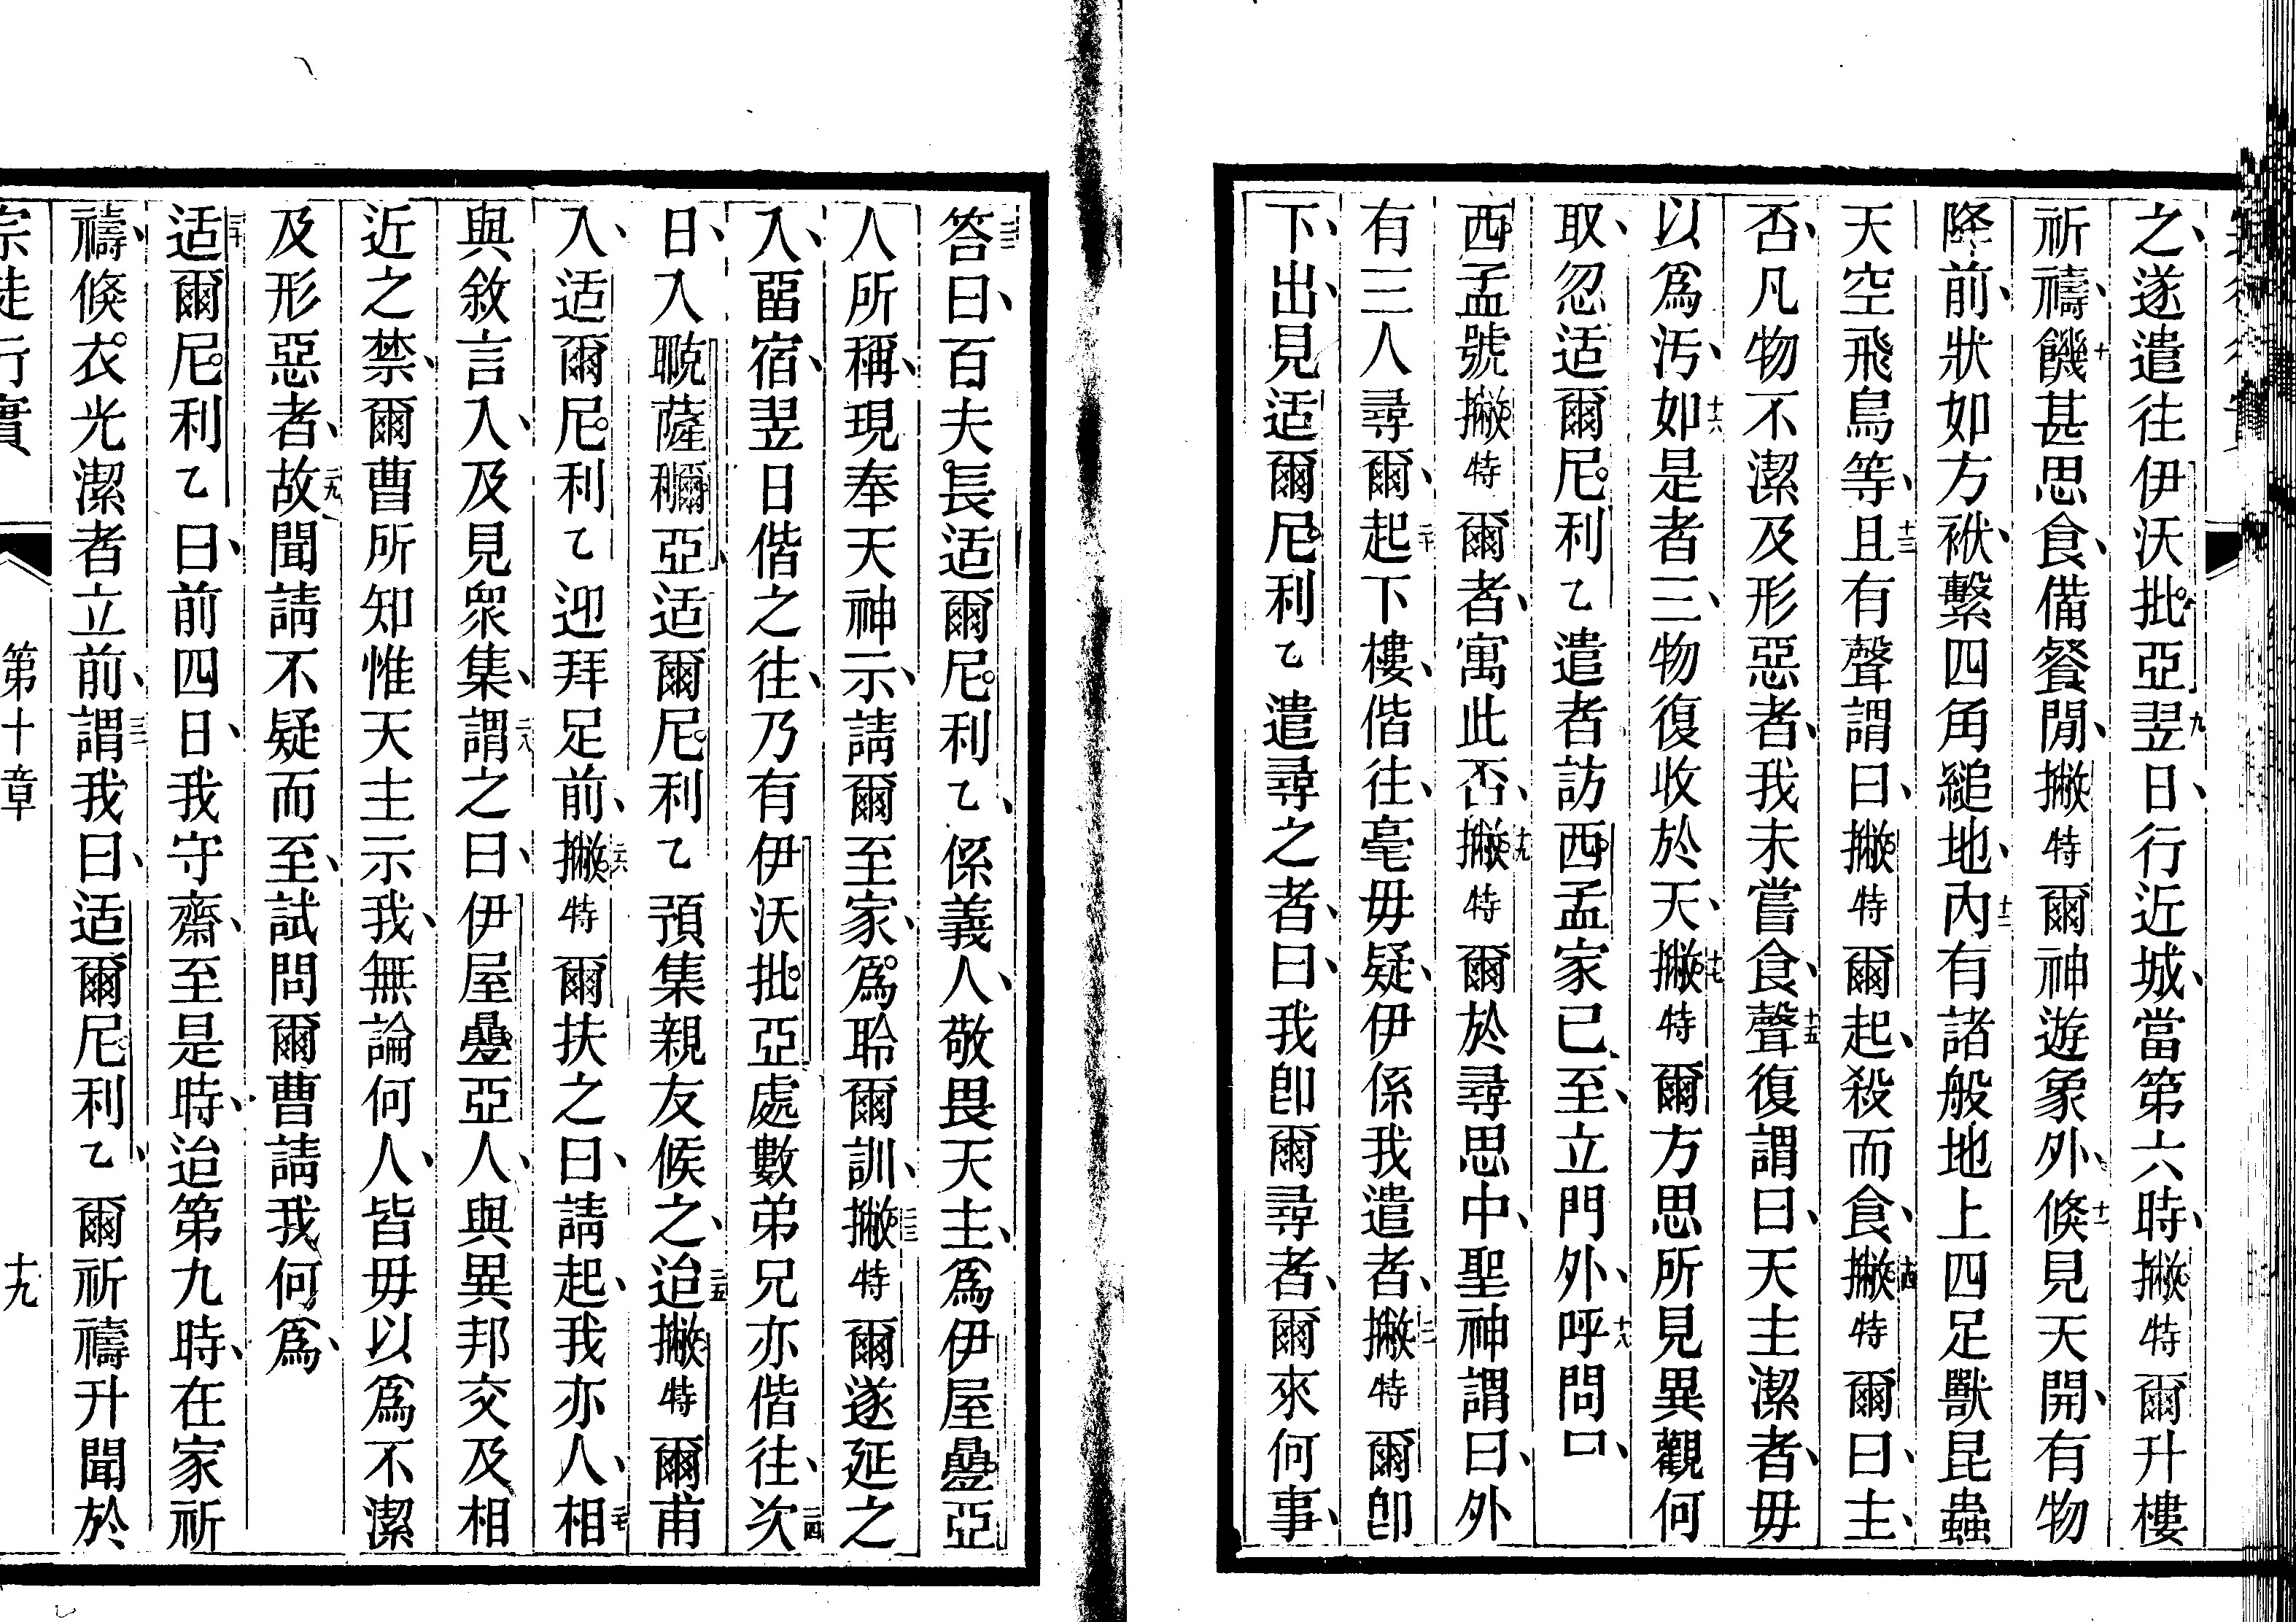 之、遂遣往伊沃批亞九翌日、行近城、當第六時、撇特爾升樓
祈禱、十饑甚思食、備餐閒、撇特爾神遊象外、十一倏見天開、有物
降前、狀如方袱、繫四角縋地、十二內有諸般地上四足獸昆蟲
天空飛鳥等、十三且有聲謂曰、撇特爾起、殺而食、十四撇特爾曰、主、
否、凡物不潔及形惡者、我未嘗食、十五聲復謂曰、天主潔者、毋
以爲汚、十六如是者三、物復收於天、十七撇特爾方思所見異觀何
取、忽适爾尼利乙遣者訪西孟家已至、立門外、十八呼問曰、
西孟號撇特爾者、寓此否、十九撇特爾於尋思中、聖神謂曰、外
有三人尋爾、二十起下樓、偕往、毫毋疑、伊係我遣者、二一撇特爾卽
下、出、見适爾尼利乙遣尋之者、曰、我卽爾尋者、爾來何事、
二二答曰、百夫長适爾尼利乙、係義人、敬畏天主、爲伊屋疊亞
人所稱、現奉天神示、請爾至家、爲聆爾訓、二三撇特爾遂延之
入、畱宿、翌日偕之往、乃有伊沃批亞處數弟兄亦偕往、二四次
日、入畷薩穪亞、适爾尼利乙預集親友候之、二五迨撇特爾甫
入、适爾尼利乙迎拜足前、二六撇特爾扶之曰、請起、我亦人、二七相
與敘言入、及見衆集、二八謂之曰、伊屋疊亞人、與異邦交及相
近之禁、爾曹所知惟天主示我、無論何人、皆毋以爲不潔
及形惡者、二九故聞請不疑而至、試問爾曹請我何爲、
三十适爾尼利乙曰、前四日、我守齋、至是時、迨第九時、在家祈
禱、倏衣光潔者立前、三一謂我曰、适爾尼利乙、爾祈禱升聞於
宗徒行實 第十章 十九